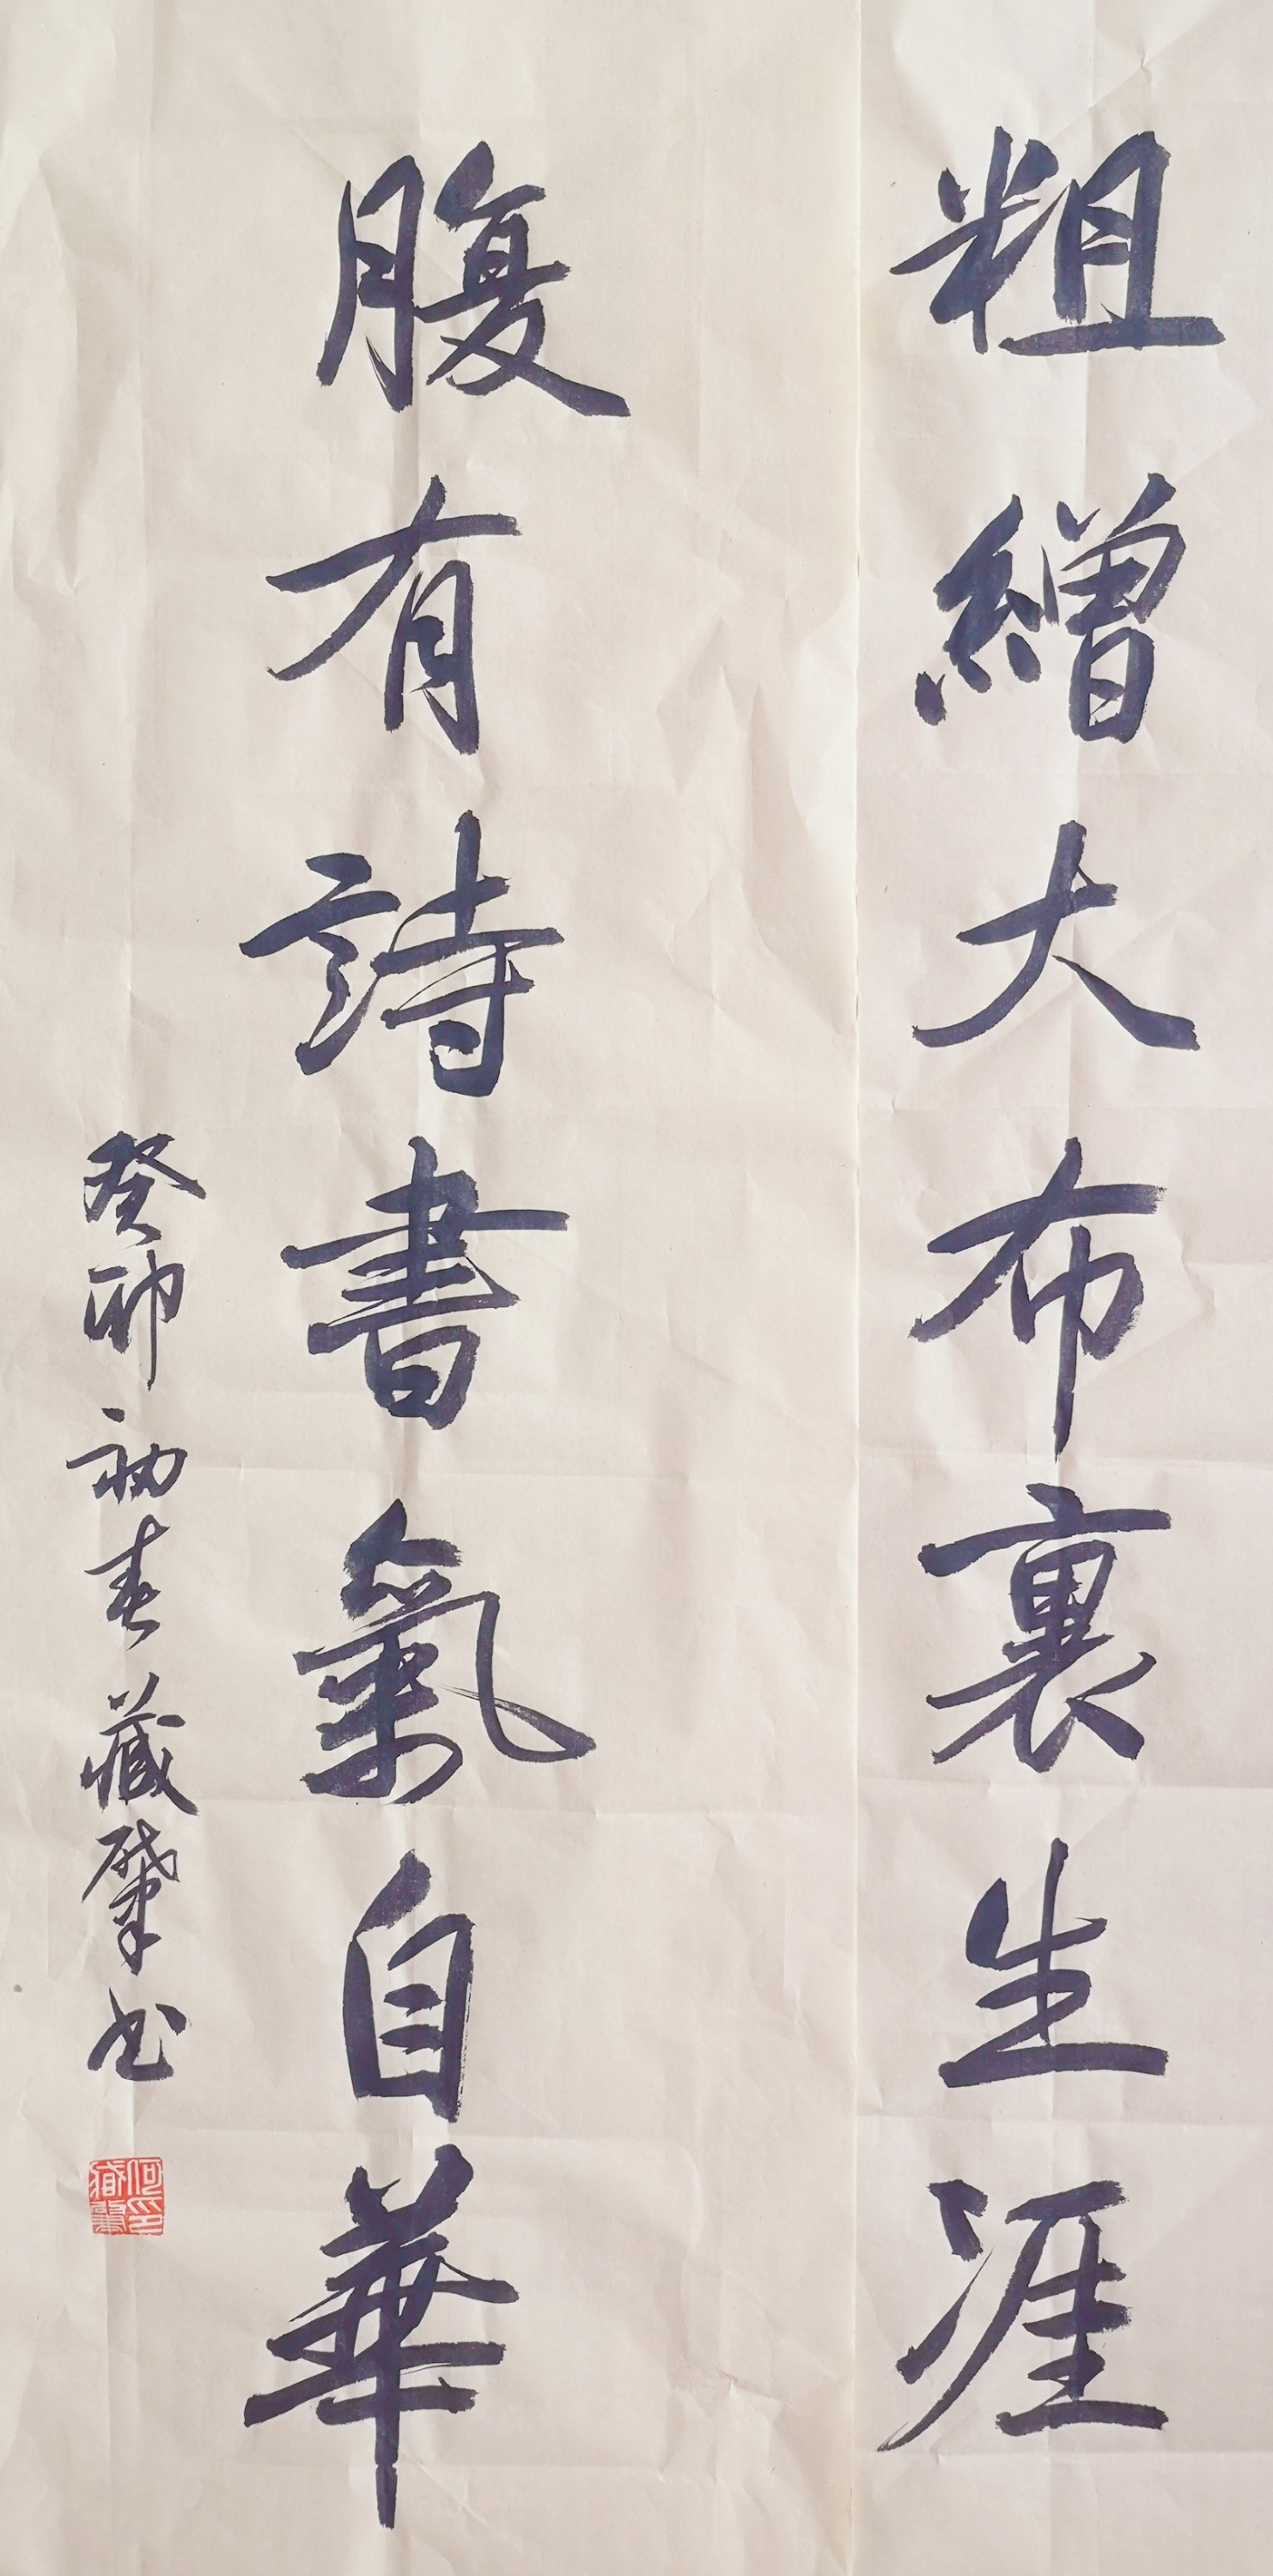 粗繒大布裹生涯
腹有詩書氣自華
癸卯初春藏肇书